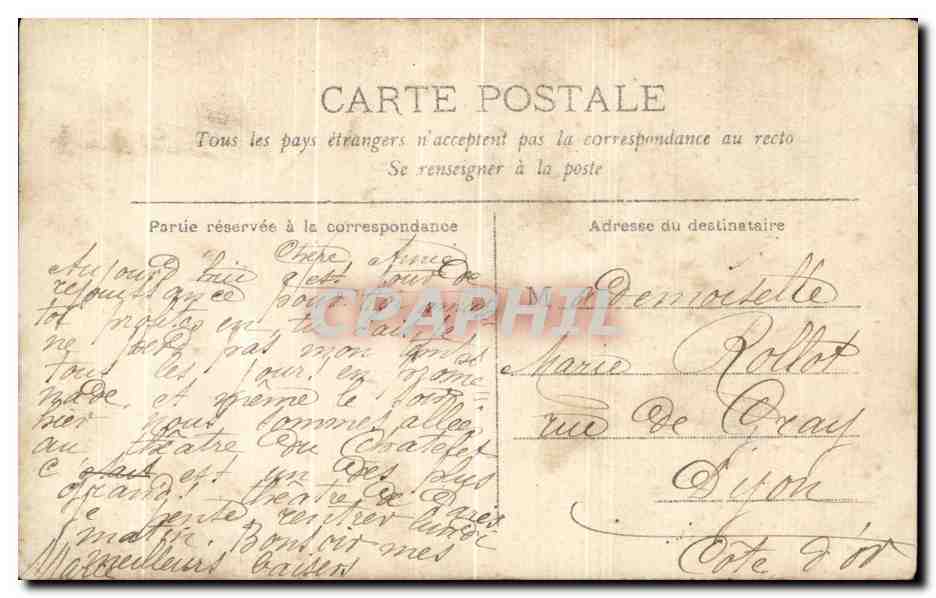 CARTE POSTALE
Tous les pays étrangers n'acceptent pas la correspondance au recto
Se renseigner à la poste
Partie réservée à la correspondance
Adresse du destinataire
Chère Amie
Aujourd'hui c'est jour de
rejouissance pour
tot
ne perd pas mon temps
tous les jours en prome=
nade et même le soir
hier nous sommes allée
au théâtre du Chatelet
c' est un des plus
grand théatre de Paris
Je pense rentrer lundi
matin. Bonsoir mes
meilleurs baisers
CPAPHIL
Mademoiselle
Marie Rollot
rue de Gray
Dijon
Cote d'or